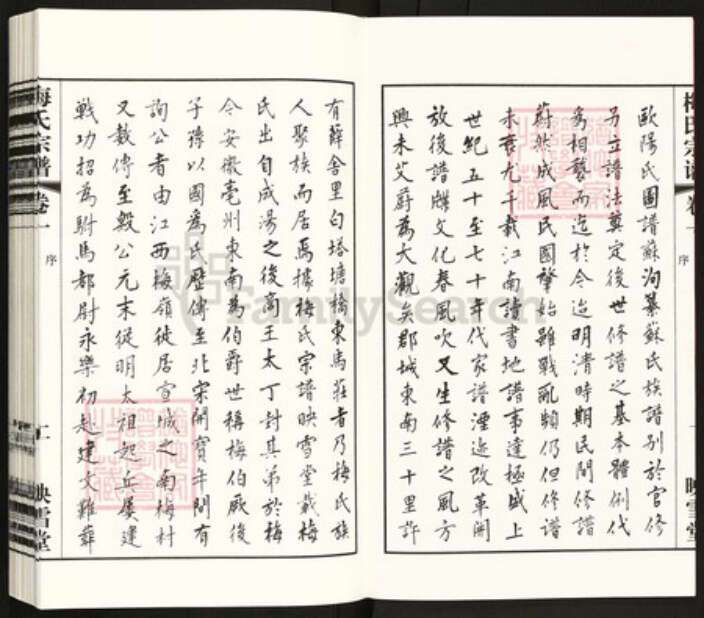 歐陽氏圖譜蘇洵纂蘇氏族譜別於官修
另立譜法奠定後世修譜之基本體例代
為相襲而迄於今迨明清時期民間修譜
蔚然成風民國肇始雖戰亂頻仍但修譜
未嘗尤千載江南讀書地譜事達極盛上
世紀五十至七十年代家譜湮迹改革開
放後譜牒文化春風吹又生修譜之風方
興未艾蔚為大觀吳郡城東南三十里許
梅氏宗譜
卷一
序
一
映雪堂
有薛舍里白塔塘橋東馬莊者乃梅氏族
人聚族而居焉據梅氏宗譜映雪堂載梅
氏出自成湯之後商王太丁封其弟於梅
今安徽亳州東南為伯爵世稱梅伯厥後
子孫以國為氏歷傳至北宋開寶年間有
詢公者由江西梅嶺徙居宣城之南梅村
又數傳至殷公元末從明太祖起兵屢建
戰功招為駙馬都尉永樂初赴建文難葬
梅氏宗譜
卷一
序
二
映雪堂
FamilySearch